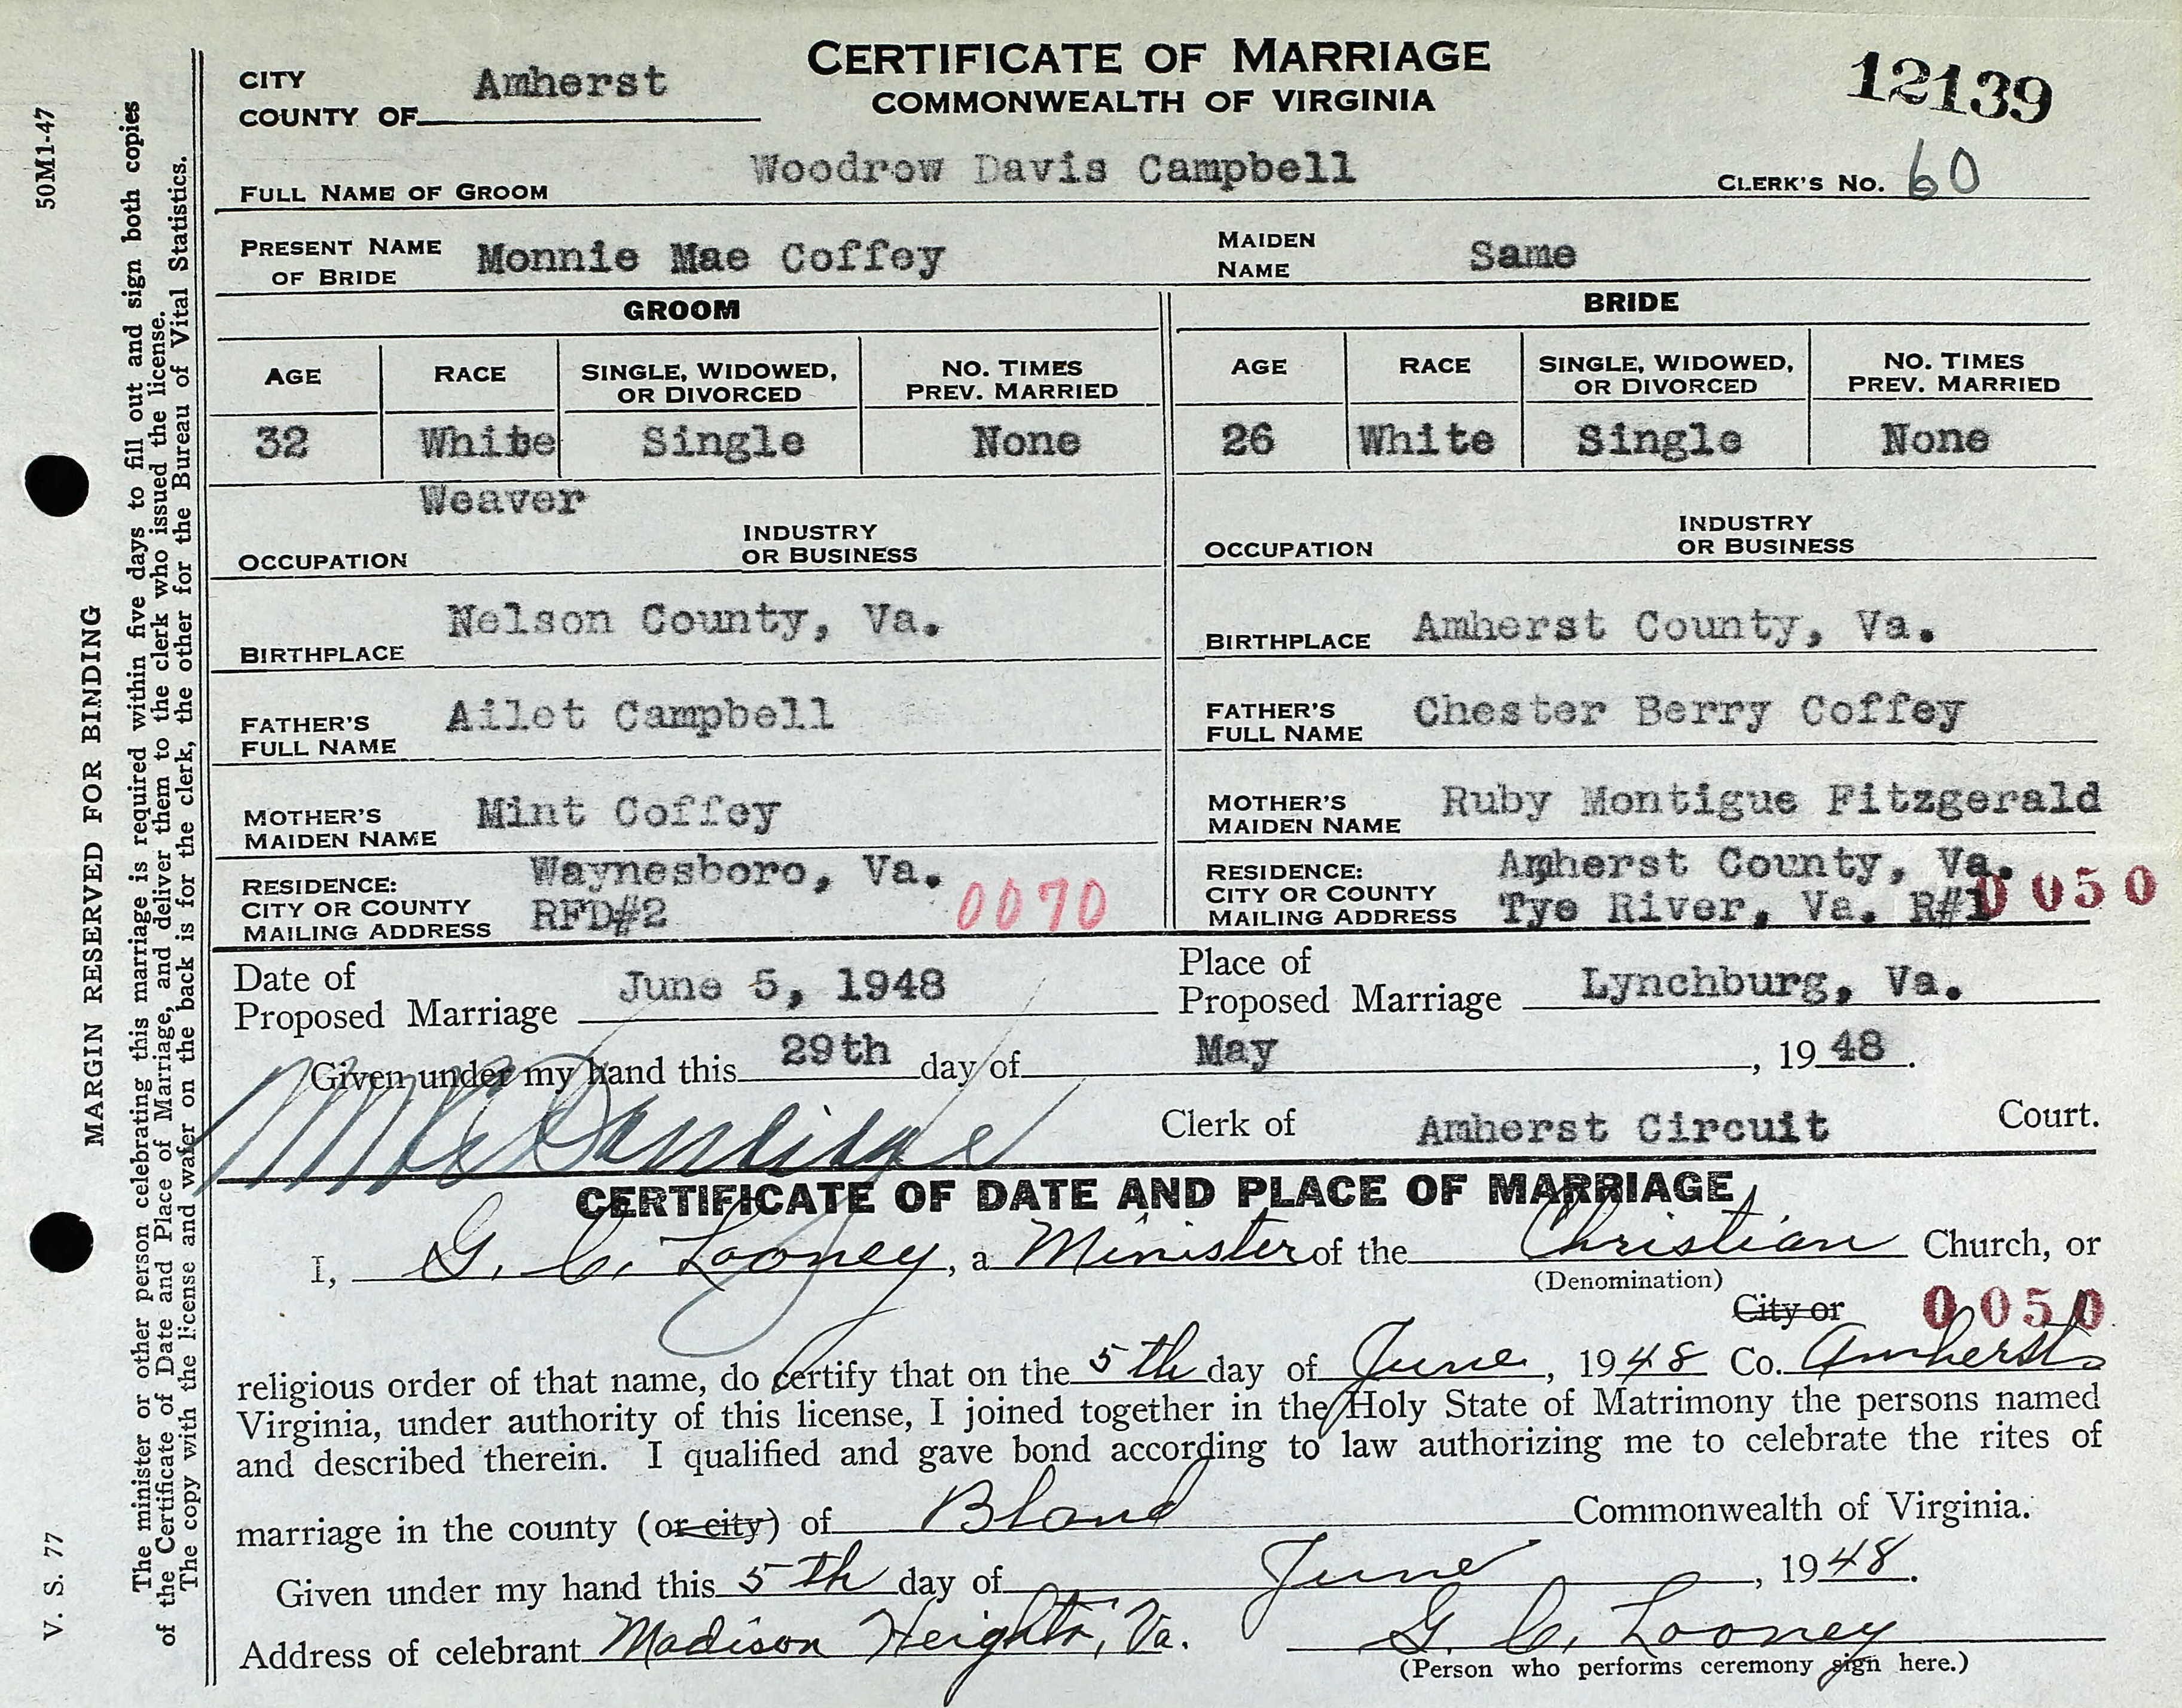 CERTIFICATE OF MARRIAGE
COMMONWEALTH OF VIRGINIA
12139
CITY
COUNTY OF Amherst
FULL NAME OF GROOM Woodrow Davis Campbell CLERK'S NO. 60
PRESENT NAME OF BRIDE Monnie Mae Coffey MAIDEN NAME Same
GROOM BRIDE
AGE RACE SINGLE, WIDOWED, OR DIVORCED NO. TIMES PREV. MARRIED AGE RACE SINGLE, WIDOWED, OR DIVORCED NO. TIMES PREV. MARRIED
32 White Single None 26 White Single None
Weaver
OCCUPATION INDUSTRY OR BUSINESS OCCUPATION INDUSTRY OR BUSINESS
BIRTHPLACE Nelson County, Va. BIRTHPLACE Amherst County, Va.
FATHER'S FULL NAME Ailet Campbell FATHER'S FULL NAME Chester Berry Coffey
MOTHER'S MAIDEN NAME Mint Coffey MOTHER'S MAIDEN NAME Ruby Montigue Fitzgerald
RESIDENCE: Waynesboro, Va. RESIDENCE: Amherst County, Va.
CITY OR COUNTY CITY OR COUNTY
MAILING ADDRESS RFD#2 0070 MAILING ADDRESS Tye River, Va. R#1 0050
Date of Proposed Marriage June 5, 1948 Place of Proposed Marriage Lynchburg, Va.
Given under my hand this 29th day of May, 1948.
Clerk of Amherst Circuit Court.
CERTIFICATE OF DATE AND PLACE OF MARRIAGE
I, G. C. Looney, a Minister of the Christian Church, or
(Denomination)
City or 0050
religious order of that name, do certify that on the 5th day of June, 1948 Co. Amherst
Virginia, under authority of this license, I joined together in the Holy State of Matrimony the persons named
and described therein. I qualified and gave bond according to law authorizing me to celebrate the rites of
marriage in the county (or city) of Bland Commonwealth of Virginia.
Given under my hand this 5th day of June, 1948.
Address of celebrant Madison Heights, Va. G. C. Looney
(Person who performs ceremony sign here.)
50M1-47
MARGIN RESERVED FOR BINDING
V. S. 77
The minister or other person celebrating this marriage is required within five days to fill out and sign both copies
of the Certificate of Date and Place of Marriage, and deliver them to the clerk who issued the license.
The copy with the license and wafer on the back is for the clerk, the other for the Bureau of Vital Statistics.